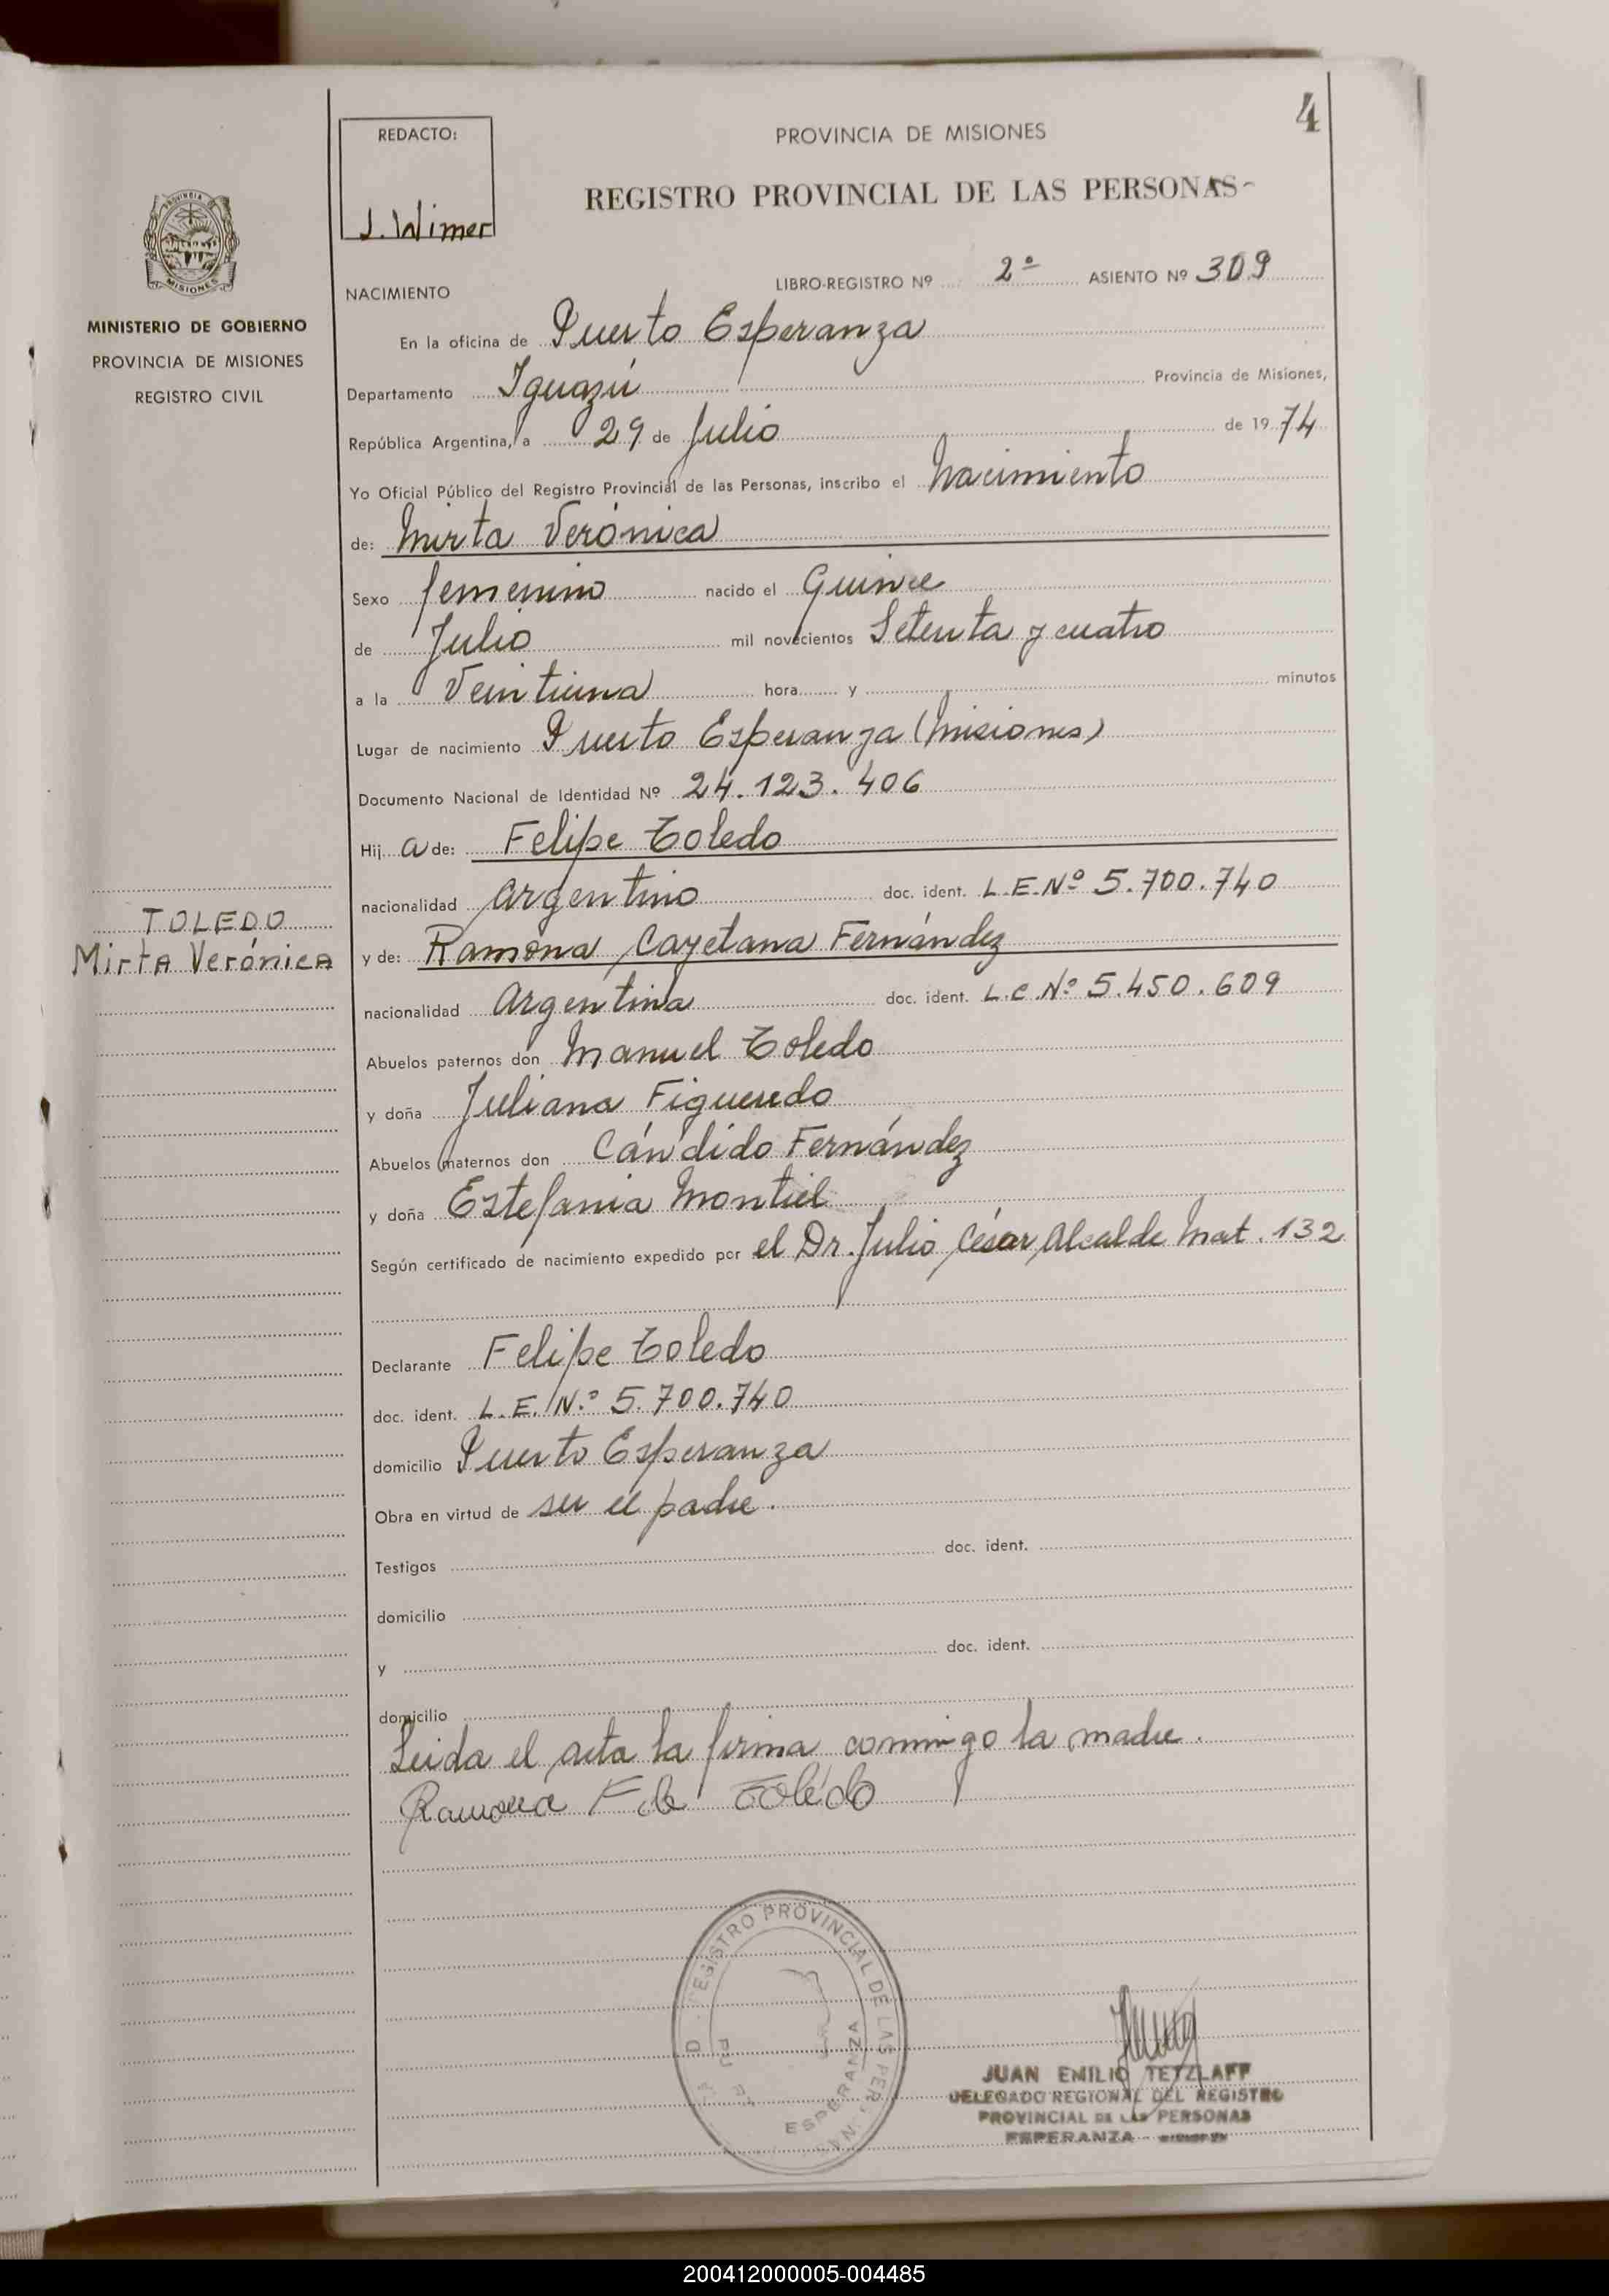 4
REDACTO:
J. Wimer
PROVINCIA DE MISIONES
REGISTRO PROVINCIAL DE LAS PERSONAS
MISIONES
MINISTERIO DE GOBIERNO
PROVINCIA DE MISIONES
REGISTRO CIVIL
LIBRO-REGISTRO Nº 2º ASIENTO Nº 309
NACIMIENTO
En la oficina de Puerto Esperanza
Departamento Iguazú Provincia de Misiones,
República Argentina, a 29 de Julio de 1974
Yo Oficial Público del Registro Provincial de las Personas, inscribo el Nacimiento
de: Mirta Verónica
Sexo femenino nacido el Quince
de Julio mil novecientos Setenta y cuatro
a la Veintiuna hora y minutos
Lugar de nacimiento Puerto Esperanza (Misiones)
Documento Nacional de Identidad Nº 24.123.406
Hij a de: Felipe Toledo
nacionalidad Argentino doc. ident. L.E.Nº 5.700.740
TOLEDO
Mirta Verónica
y de: Ramona Cayetana Fernández
nacionalidad Argentina doc. ident. L.C.Nº 5.450.609
Abuelos paternos don Manuel Toledo
y doña Juliana Figueredo
Abuelos maternos don Cándido Fernández
y doña Estefania Montiel
Según certificado de nacimiento expedido por el Dr. Julio César Alcalde Mat. 132
Declarante Felipe Toledo
doc. ident. L.E. Nº 5.700.740
domicilio Puerto Esperanza
Obra en virtud de ser el padre.
Testigos doc. ident.
domicilio
y doc. ident.
domicilio
Leida el acta la firma conmigo la madre.
Ramona F de Toledo
REGISTRO PROVINCIAL DE LAS PERSONAS
ESPERANZA
JUAN EMILIO TETZLAFF
DELEGADO REGIONAL DEL REGISTRO
PROVINCIAL DE LAS PERSONAS
ESPERANZA
200412000005-004485